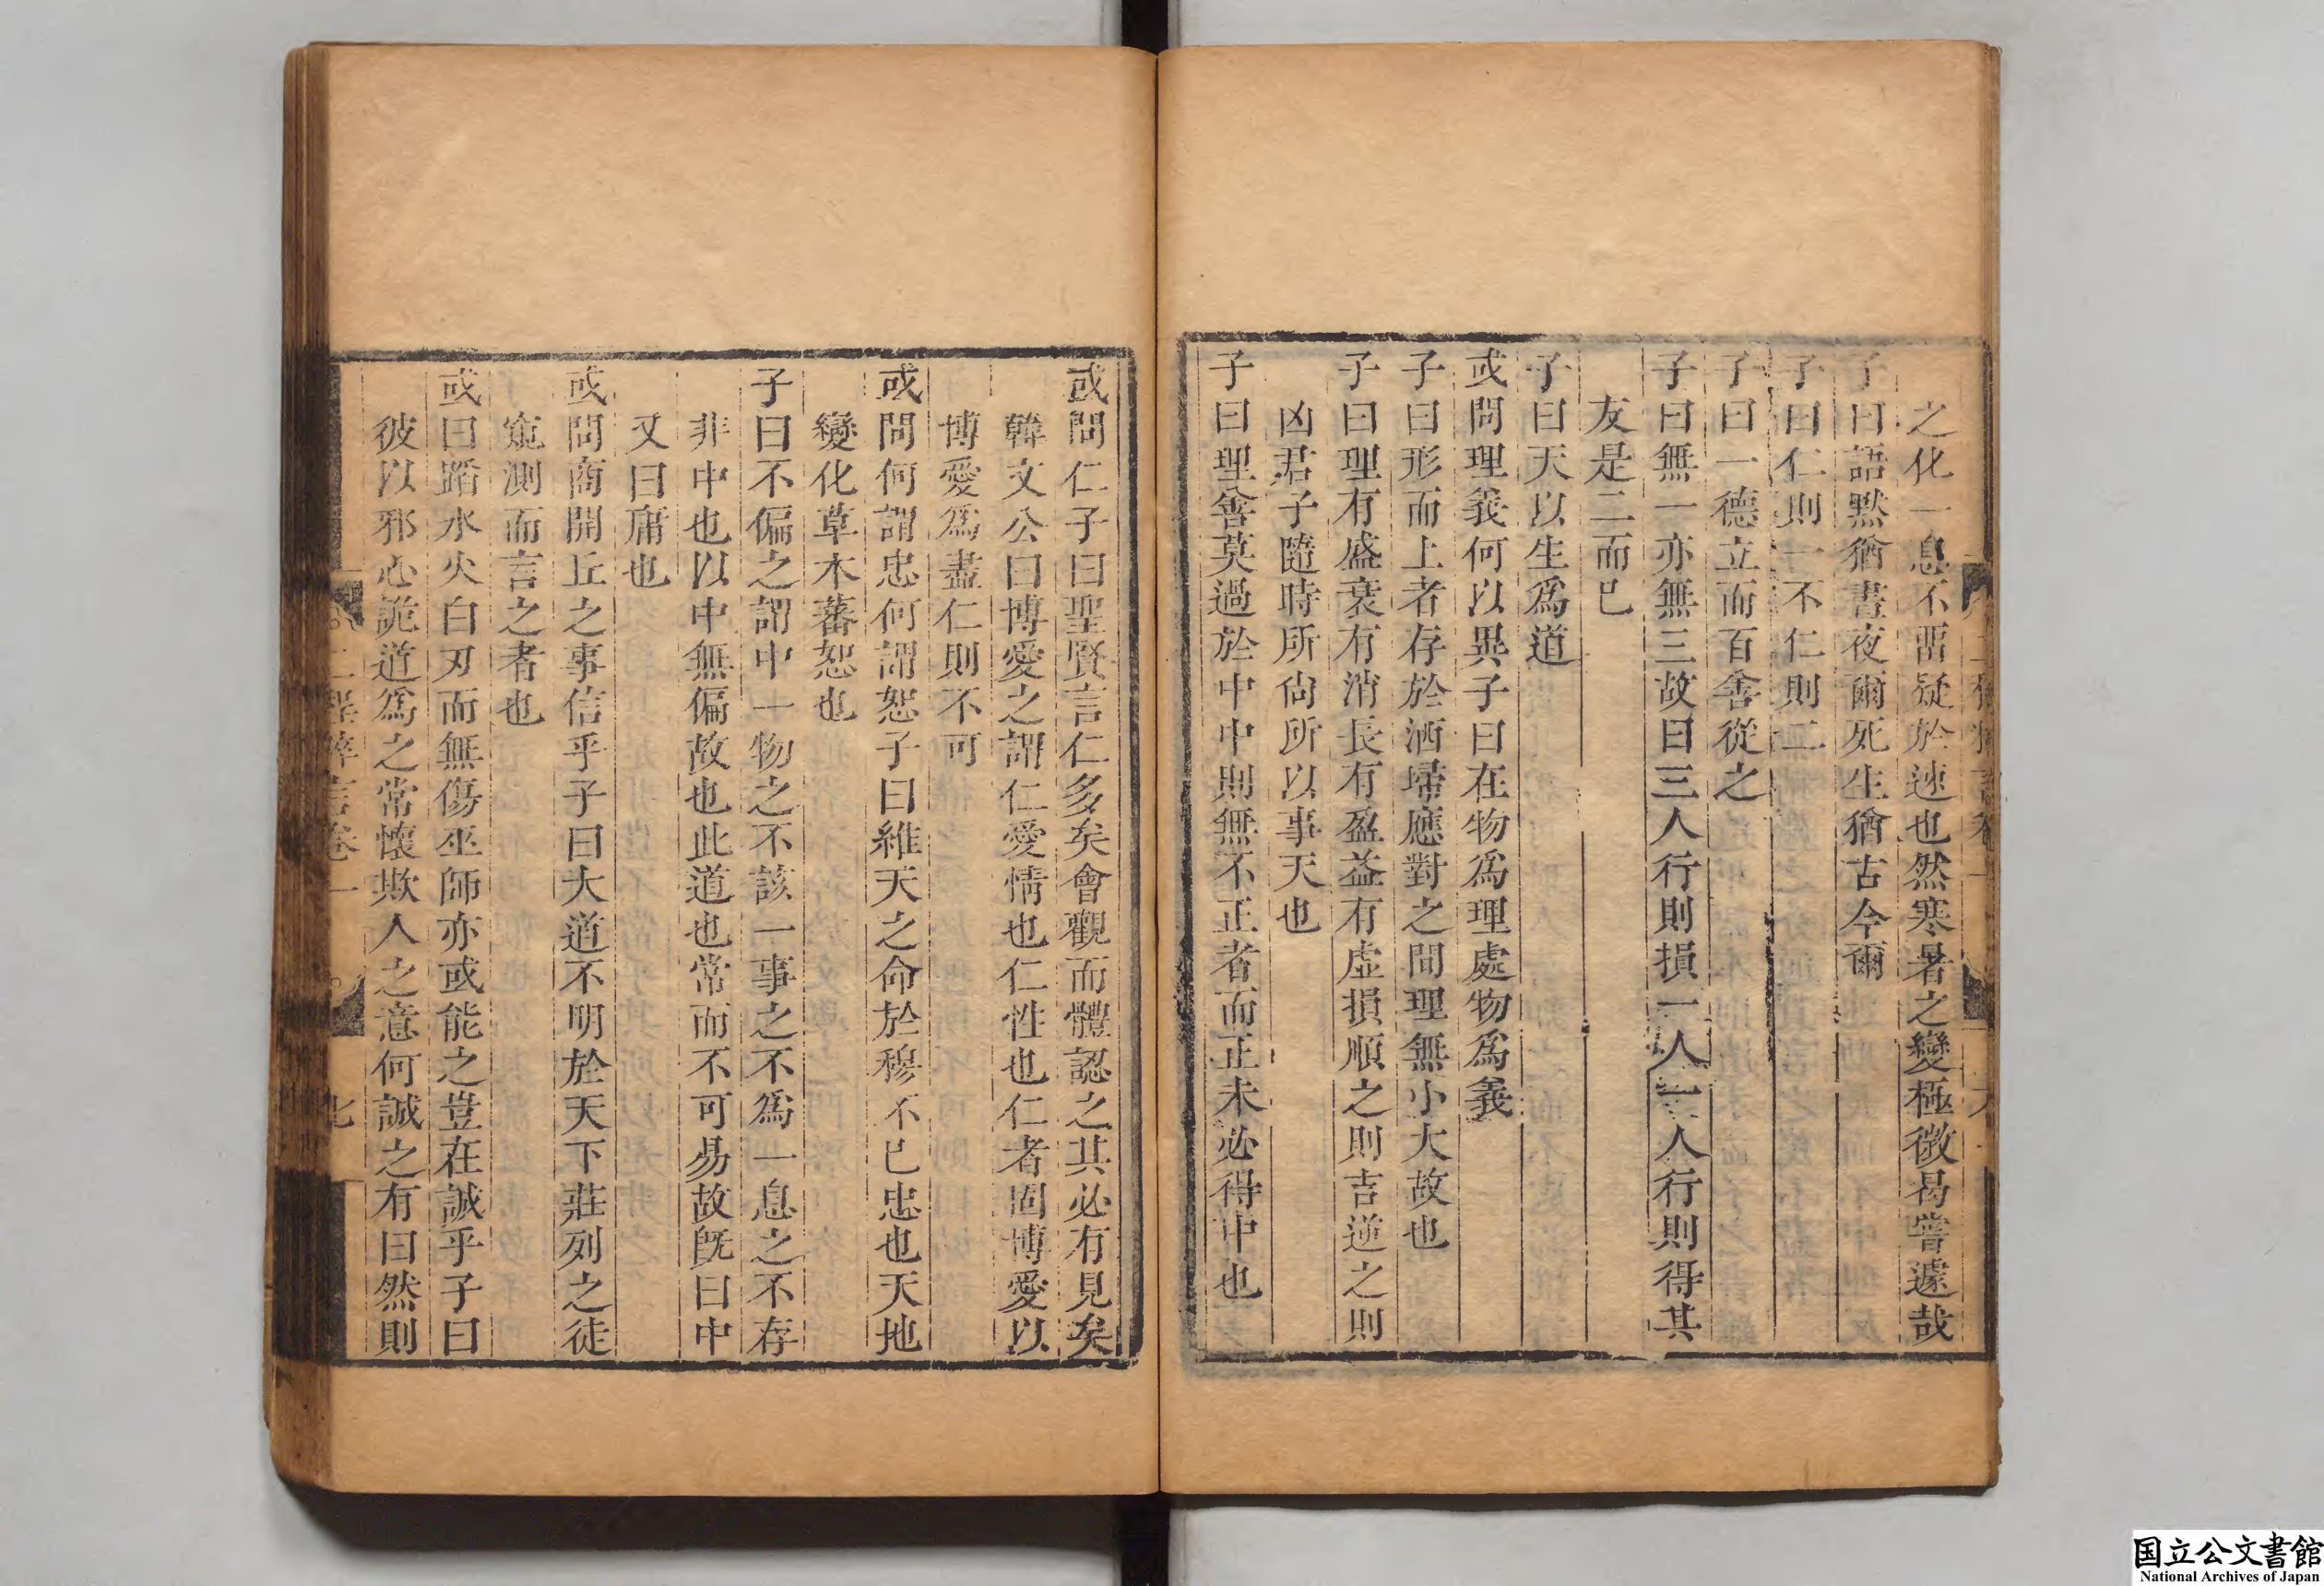 之化一息不畱疑於速也然寒暑之變極微曷嘗遽哉
子曰語默猶晝夜爾死生猶古今爾
子曰仁則一不仁則二
子曰一德立而百善從之
子曰無一亦無三故曰三人行則損一人一人行則得其
友是二而已
子曰天以生爲道
或問理義何以異子曰在物爲理處物爲義
子曰形而上者存於洒埽應對之間理無小大故也
子曰理有盛衰有消長有盈益有虛損順之則吉逆之則
凶君子隨時所尙所以事天也
子曰理善莫過於中中則無不正者而正未必得中也
或問仁子曰聖賢言仁多矣會觀而體認之其必有見矣
韓文公曰博愛之謂仁愛情也仁性也仁者固博愛以
博愛爲盡仁則不可
或問何謂忠何謂恕子曰維天之命於穆不已忠也天地
變化草木蕃恕也
子曰不偏之謂中一物之不該一事之不爲一息之不存
非中也以中無偏故也此道也常而不可易故旣曰中
又曰庸也
或問商開丘之事信乎子曰大道不明於天下莊列之徒
窺測而言之者也
或曰蹈水火白刃而無傷巫師亦或能之豈在誠乎子曰
彼以邪心詭道爲之常懷欺人之意何誠之有曰然則
二程粹言卷一
七
国立公文書館
National Archives of Japan